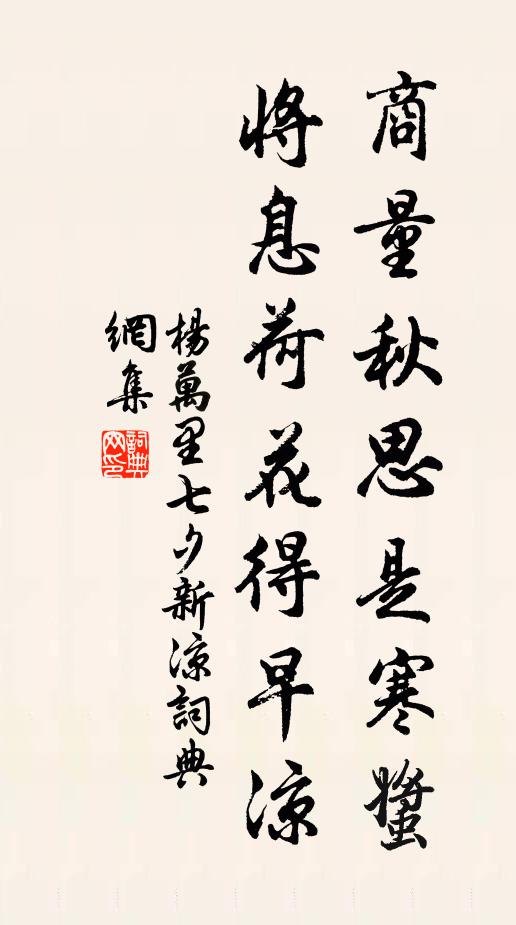 商量秋思是寒螿
將息荷花得早涼
楊萬里七夕新涼詞典
網集
詞典網印